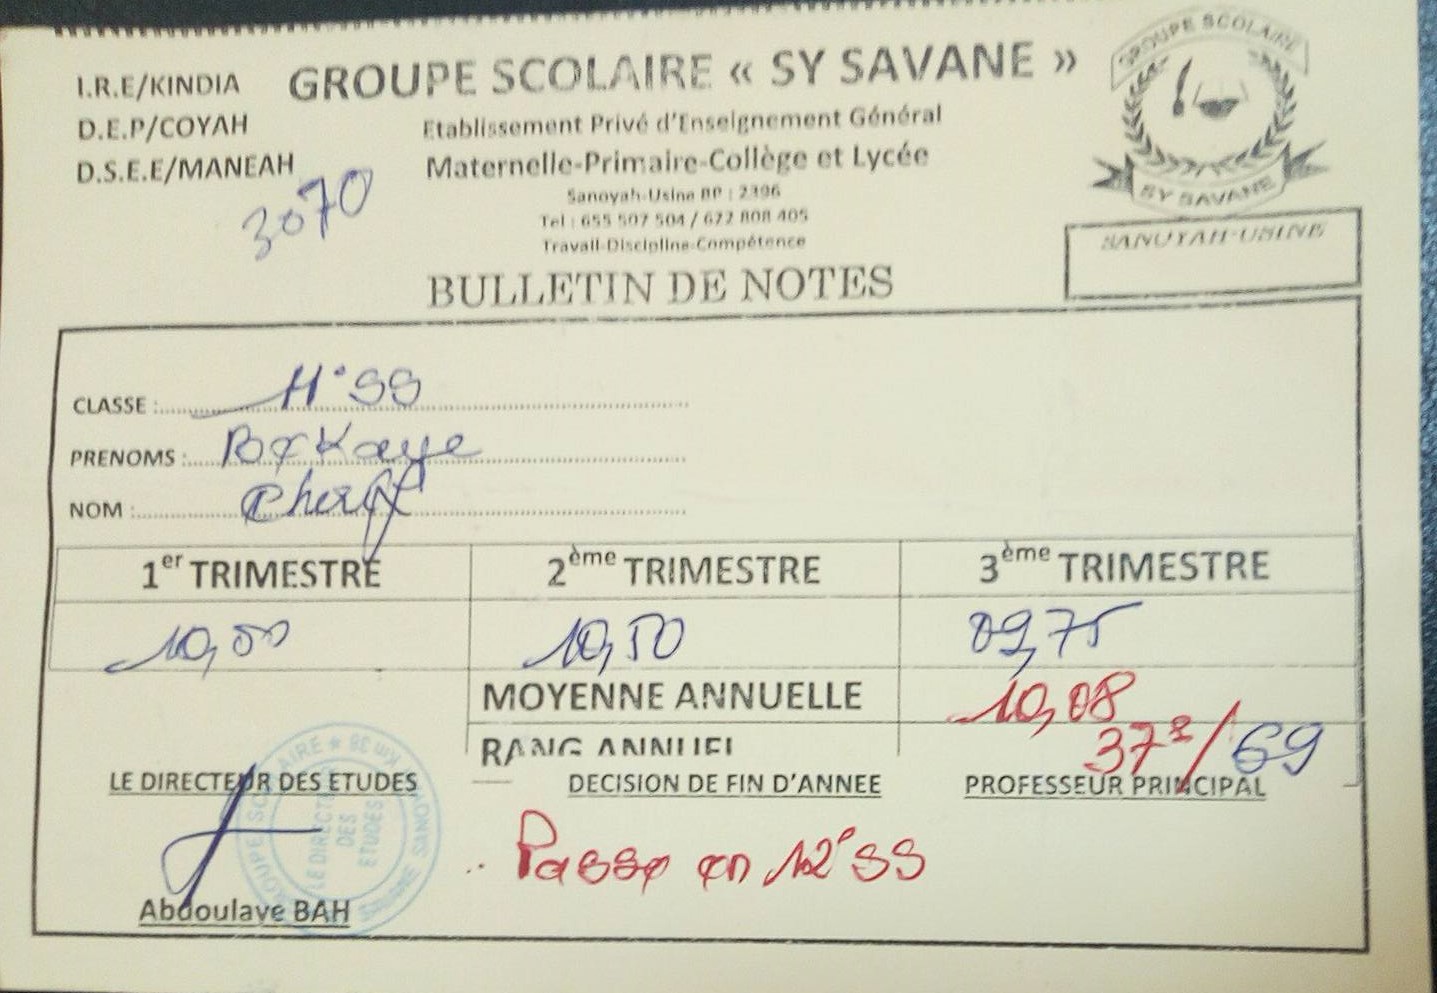 I.R.E/KINDIA
D.E.P/COYAH
D.S.E.E/MANEAH
3070
GROUPE SCOLAIRE « SY SAVANE »
Etablissement Privé d'Enseignement Général
Maternelle-Primaire-Collège et Lycée
Sanoyah-Usine BP : 2396
Tel : 655 507 504 / 622 808 405
Travail-Discipline-Compétence
GROUPE SCOLAIRE
SY SAVANE
SANOYAH-USINE
BULLETIN DE NOTES
CLASSE : 11°SS
PRENOMS : Bakaye
NOM : Cherif
1er TRIMESTRE 2ème TRIMESTRE 3ème TRIMESTRE
10,00 10,50 09,75
MOYENNE ANNUELLE 10,08
RANG ANNUEL 37e/69
LE DIRECTEUR DES ETUDES DECISION DE FIN D'ANNEE PROFESSEUR PRINCIPAL
LE DIRECTEUR
DES
ETUDES
Passe en 12°SS
Abdoulaye BAH